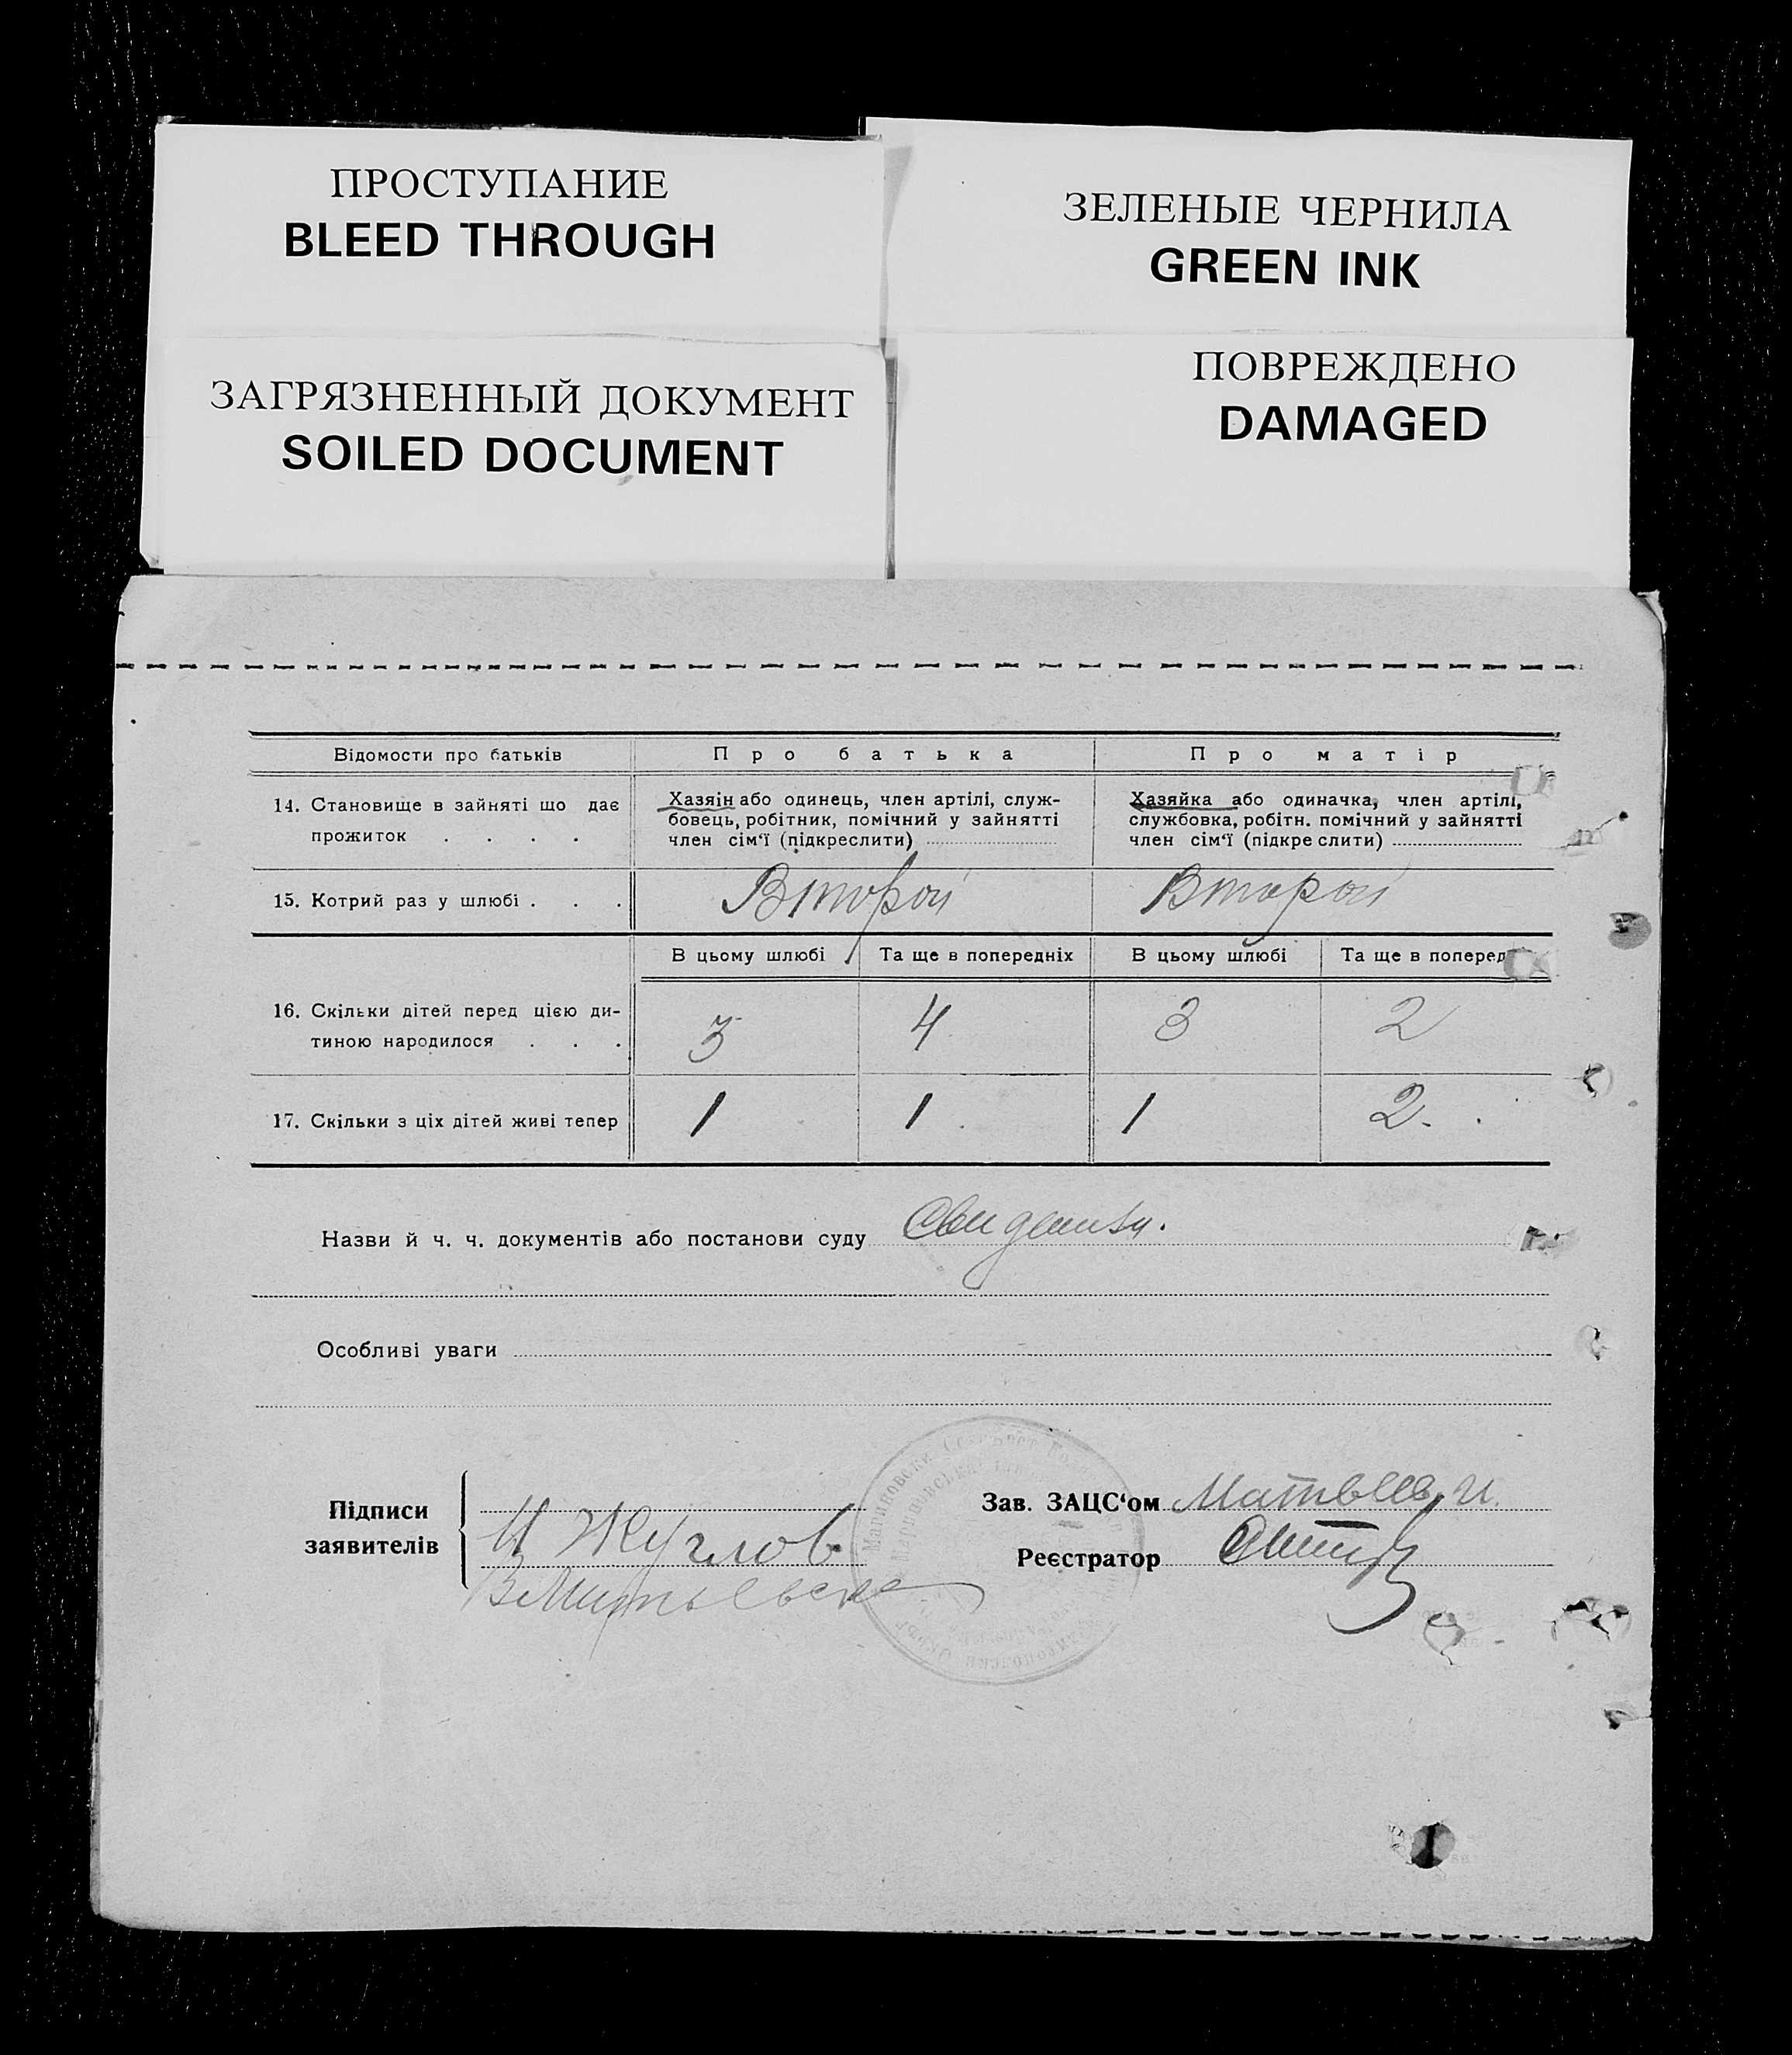 ПРОСТУПАНИЕ
BLEED THROUGH
ЗЕЛЕНЫЕ ЧЕРНИЛА
GREEN INK
ЗАГРЯЗНЕННЫЙ ДОКУМЕНТ
SOILED DOCUMENT
ПОВРЕЖДЕНО
DAMAGED
Відомости про батьків
Про батька
Про матір
14. Становище в зайняті що дає
прожиток . . . .
Хазяїн або одинець, член артілі, служ-
бовець, робітник, помічний у зайнятті
член сім‘ї (підкреслити)
Хазяйка або одиначка, член артілі,
службовка, робітн. помічний у зайнятті
член сім‘ї (підкреслити)
15. Котрий раз у шлюбі . . .
Второй
Второй
В цьому шлюбі
Та ще в попередніх
В цьому шлюбі
Та ще в поперед
16. Скільки дітей перед цією ди-
тиною народилося . . .
3
4
3
2
17. Скільки з ціх дітей живі тепер
1
1
1
2.
Назви й ч. ч. документів або постанови суду
Особливі уваги
Підписи
заявителів
Жуглов
Зав. ЗАЦС‘ом
Реєстратор